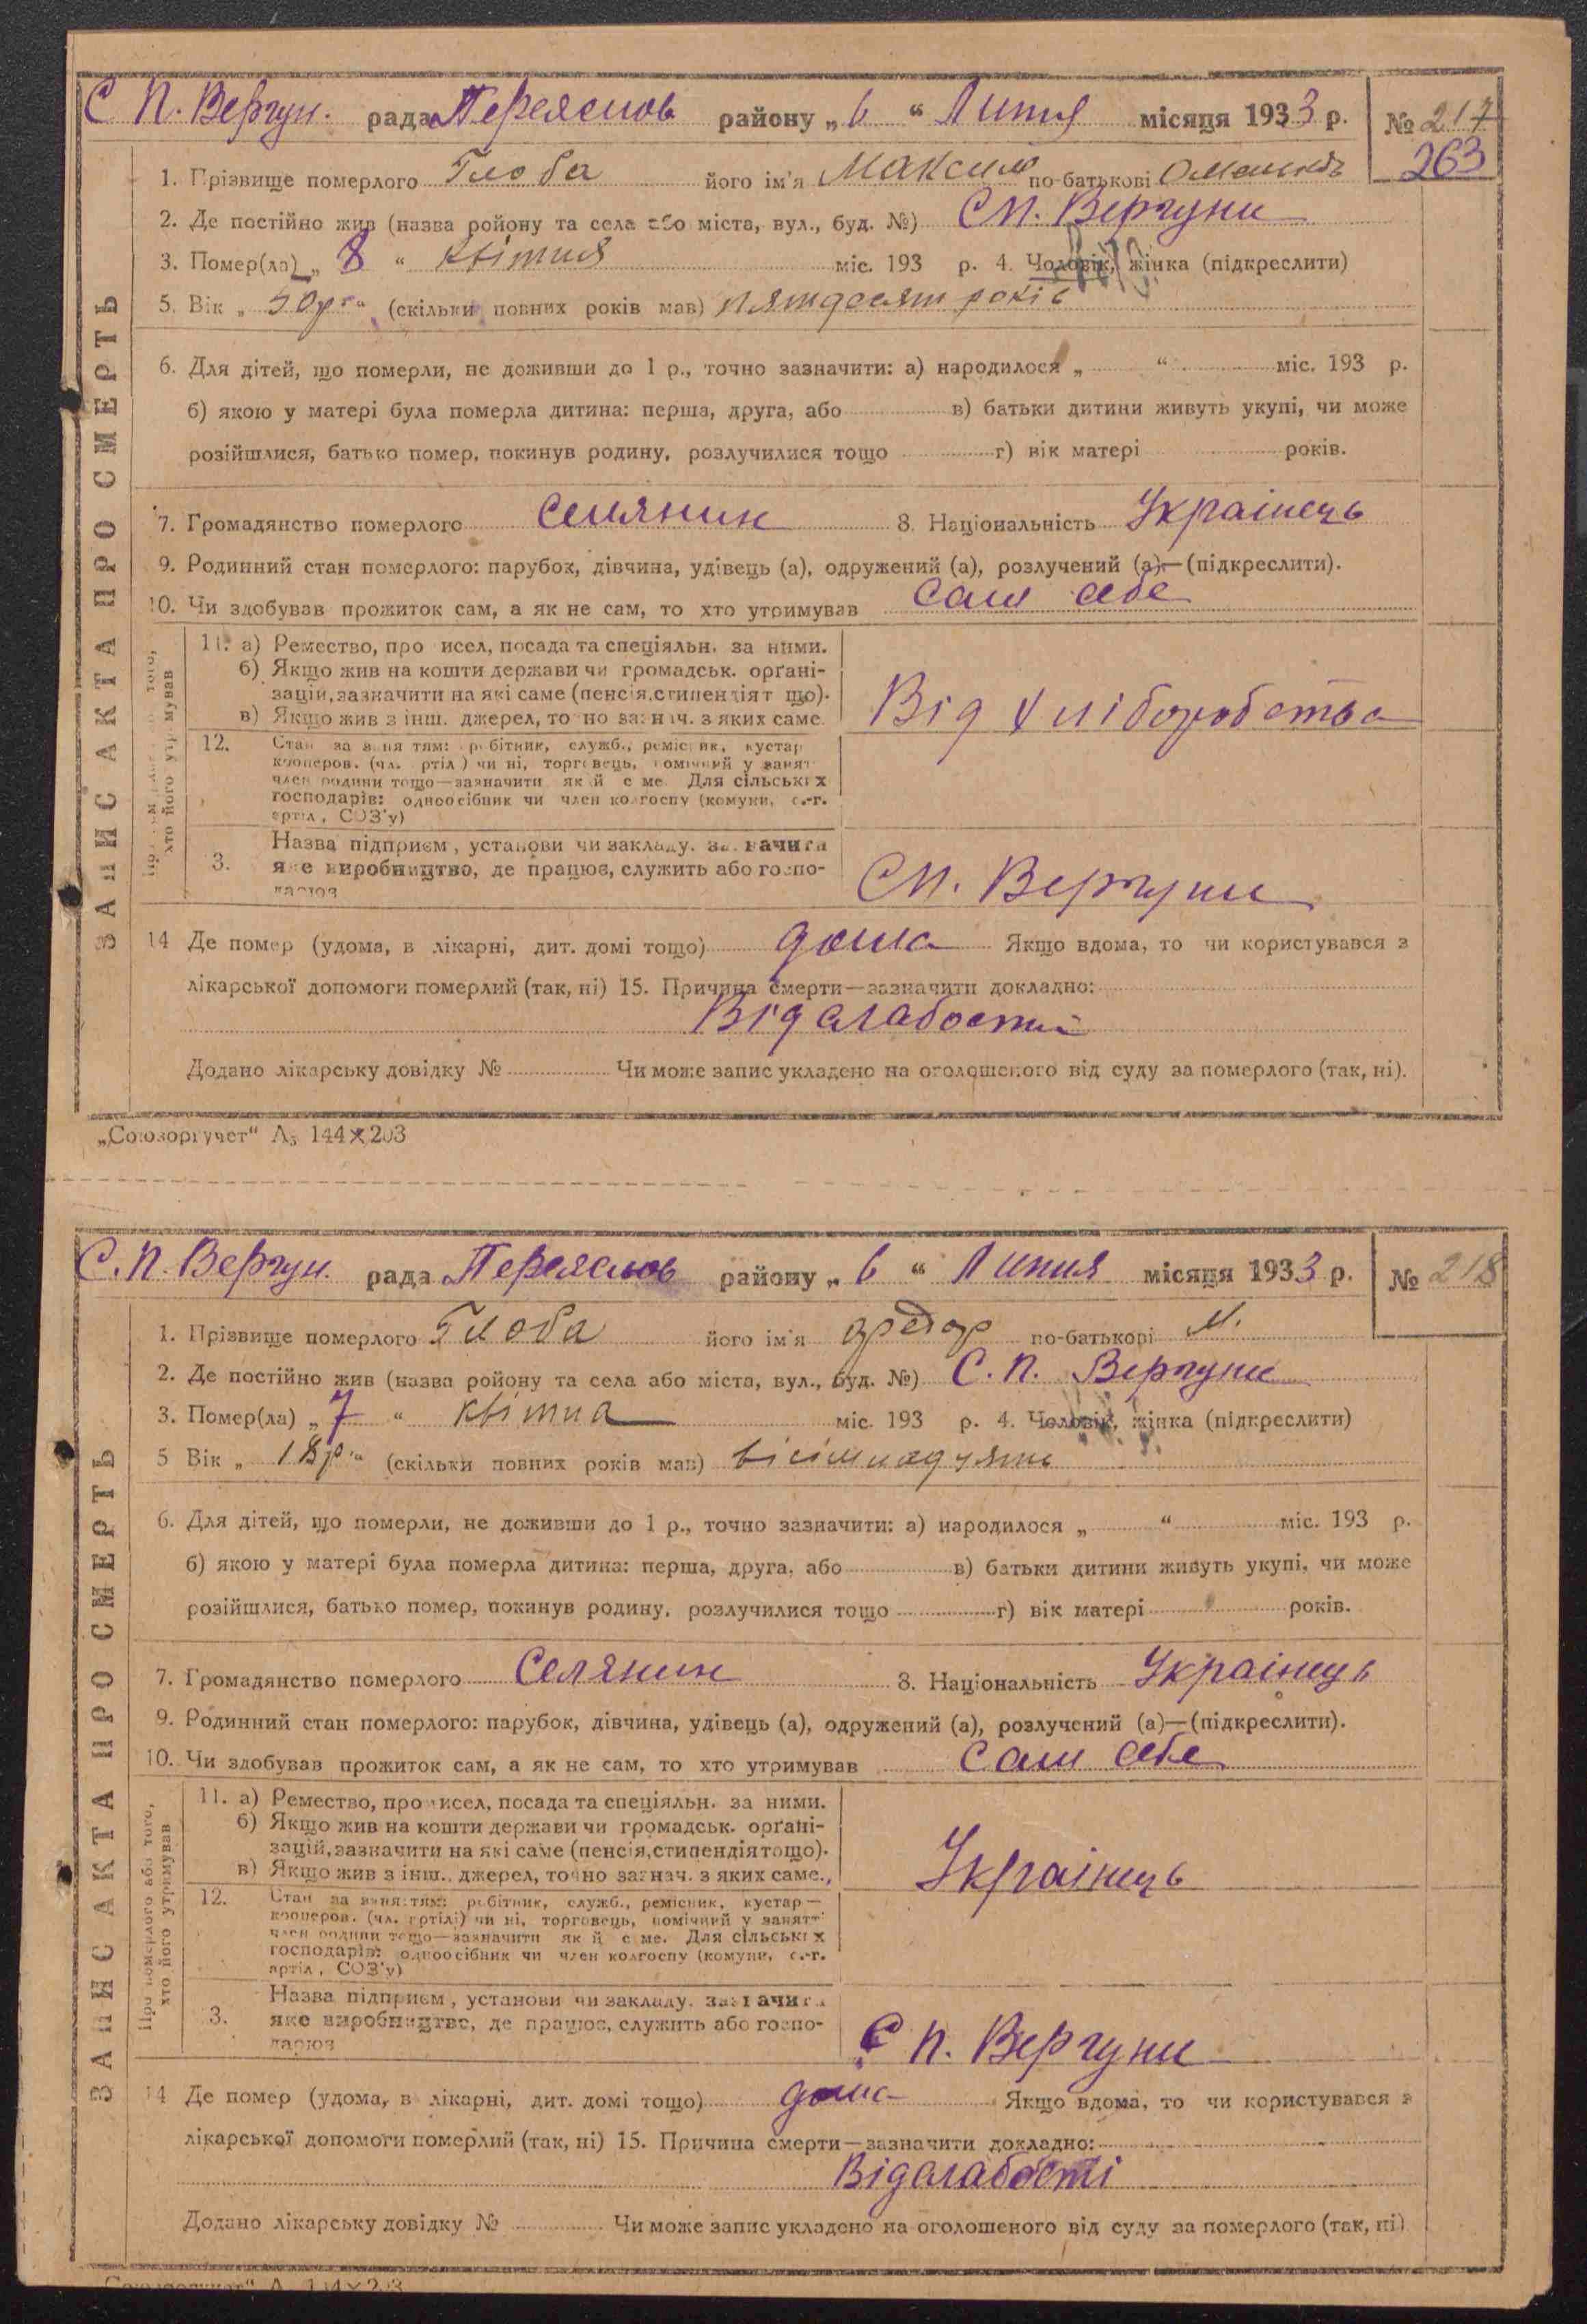 С П. Вергун. рада Переяслов району „ 6 “ Липня місяця 1933 р. № 217
263
1. Прізвище померлого Глоба його ім'я Максим по-батькові
2. Де постійно жив (назва ройону та села або міста, вул., буд. №) СП. Вергуни
3. Помер(ла) „ 8 “ квітня міс. 193 р. 4. Чоловік, жінка (підкреслити)
5. Вік „ 50р “ (скільки повних років мав) пятдесят років
6. Для дітей, що померли, не доживши до 1 р., точно зазначити: а) народилося „ “ міс. 193 р.
б) якою у матері була померла дитина: перша, друга, або в) батьки дитини живуть укупі, чи може
розійшлися, батько помер, покинув родину, розлучилися тощо г) вік матері років.
7. Громадянство померлого Селянин 8. Національність Українець
9. Родинний стан померлого: парубок, дівчина, удівець (а), одружений (а), розлучений (а)—(підкреслити).
10. Чи здобував прожиток сам, а як не сам, то хто утримував Сам себе
11. а) Ремество, про исел, посада та спеціяльн. за ними.
б) Якщо жив на кошти держави чи громадськ. орґані-
зацій, зазначити на які саме (пенсія, стипендія т що).
в) Якщо жив з інш. джерел, то но зазнач. з яких саме.
Від хліборобства
12. Стан за заняттям: робітник, служб., ремісник, кустар
кооперов. (чл. ртіл ) чи ні, торговець, помічний у занят
член родини тощо—зазначити як й с ме. Для сільських
господарів: одноосібник чи член колгоспу (комуни, с.-г.
артіл , СОЗ'у)
3. Назва підприєм , установи чи закладу. зазначити
яке виробництво, де працює, служить або госпо-
дарює
СП. Вергуни
14 Де помер (удома, в лікарні, дит. домі тощо) дома Якщо вдома, то чи користувався з
лікарської допомоги померлий (так, ні) 15. Причина смерти—зазначити докладно:
Від слабости
Додано лікарську довідку № Чи може запис укладено на оголошеного від суду за померлого (так, ні).
ЗАПИС АКТА ПРО СМЕРТЬ
„Союзоргучет“ А₅ 144×203
С. П. Вергун. рада Переяслов району „ 6 “ Липня місяця 1933 р. № 218
1. Прізвище померлого Глоба його ім'я федор по-батькові М.
2. Де постійно жив (назва ройону та села або міста, вул., буд. №) С. П. Вергуни
3. Помер(ла) „ 7 “ квітня міс. 193 р. 4. Чоловік, жінка (підкреслити)
5 Вік „ 18р “ (скільки повних років мав) вісімнадцять
6. Для дітей, що померли, не доживши до 1 р., точно зазначити: а) народилося „ “ міс. 193 р.
б) якою у матері була померла дитина: перша, друга, або в) батьки дитини живуть укупі, чи може
розійшлися, батько помер, покинув родину, розлучилися тощо г) вік матері років.
7. Громадянство померлого Селянин 8. Національність Українець
9. Родинний стан померлого: парубок, дівчина, удівець (а), одружений (а), розлучений (а)—(підкреслити).
10. Чи здобував прожиток сам, а як не сам, то хто утримував Сам себе
11. а) Ремество, про исел, посада та спеціяльн. за ними.
б) Якщо жив на кошти держави чи громадськ. орґані-
зацій, зазначити на які саме (пенсія, стипендія тощо).
в) Якщо жив з інш. джерел, точно зазнач. з яких саме.,
Українець
12. Стан за заняттям: робітник, служб., ремісник, кустар —
кооперов. (чл. артілі) чи ні, торговець, помічний у занятт
член родини тощо—зазначити як й с ме. Для сільських
господарів: одноосібник чи член колгоспу (комуни, с.-г.
артіл , СОЗ'у)
3. Назва підприєм , установи чи закладу. зазначити
яке виробництво, де працює, служить або госпо-
дарює
С П. Вергуни
14 Де помер (удома, в лікарні, дит. домі тощо) дома Якщо вдома, то чи користувався з
лікарської допомоги померлий (так, ні) 15. Причина смерти—зазначити докладно:
Від слабості
Додано лікарську довідку № Чи може запис укладено на оголошеного від суду за померлого (так, ні)
Про померлого або того,
хто його утримував
ЗАПИС АКТА ПРО СМЕРТЬ